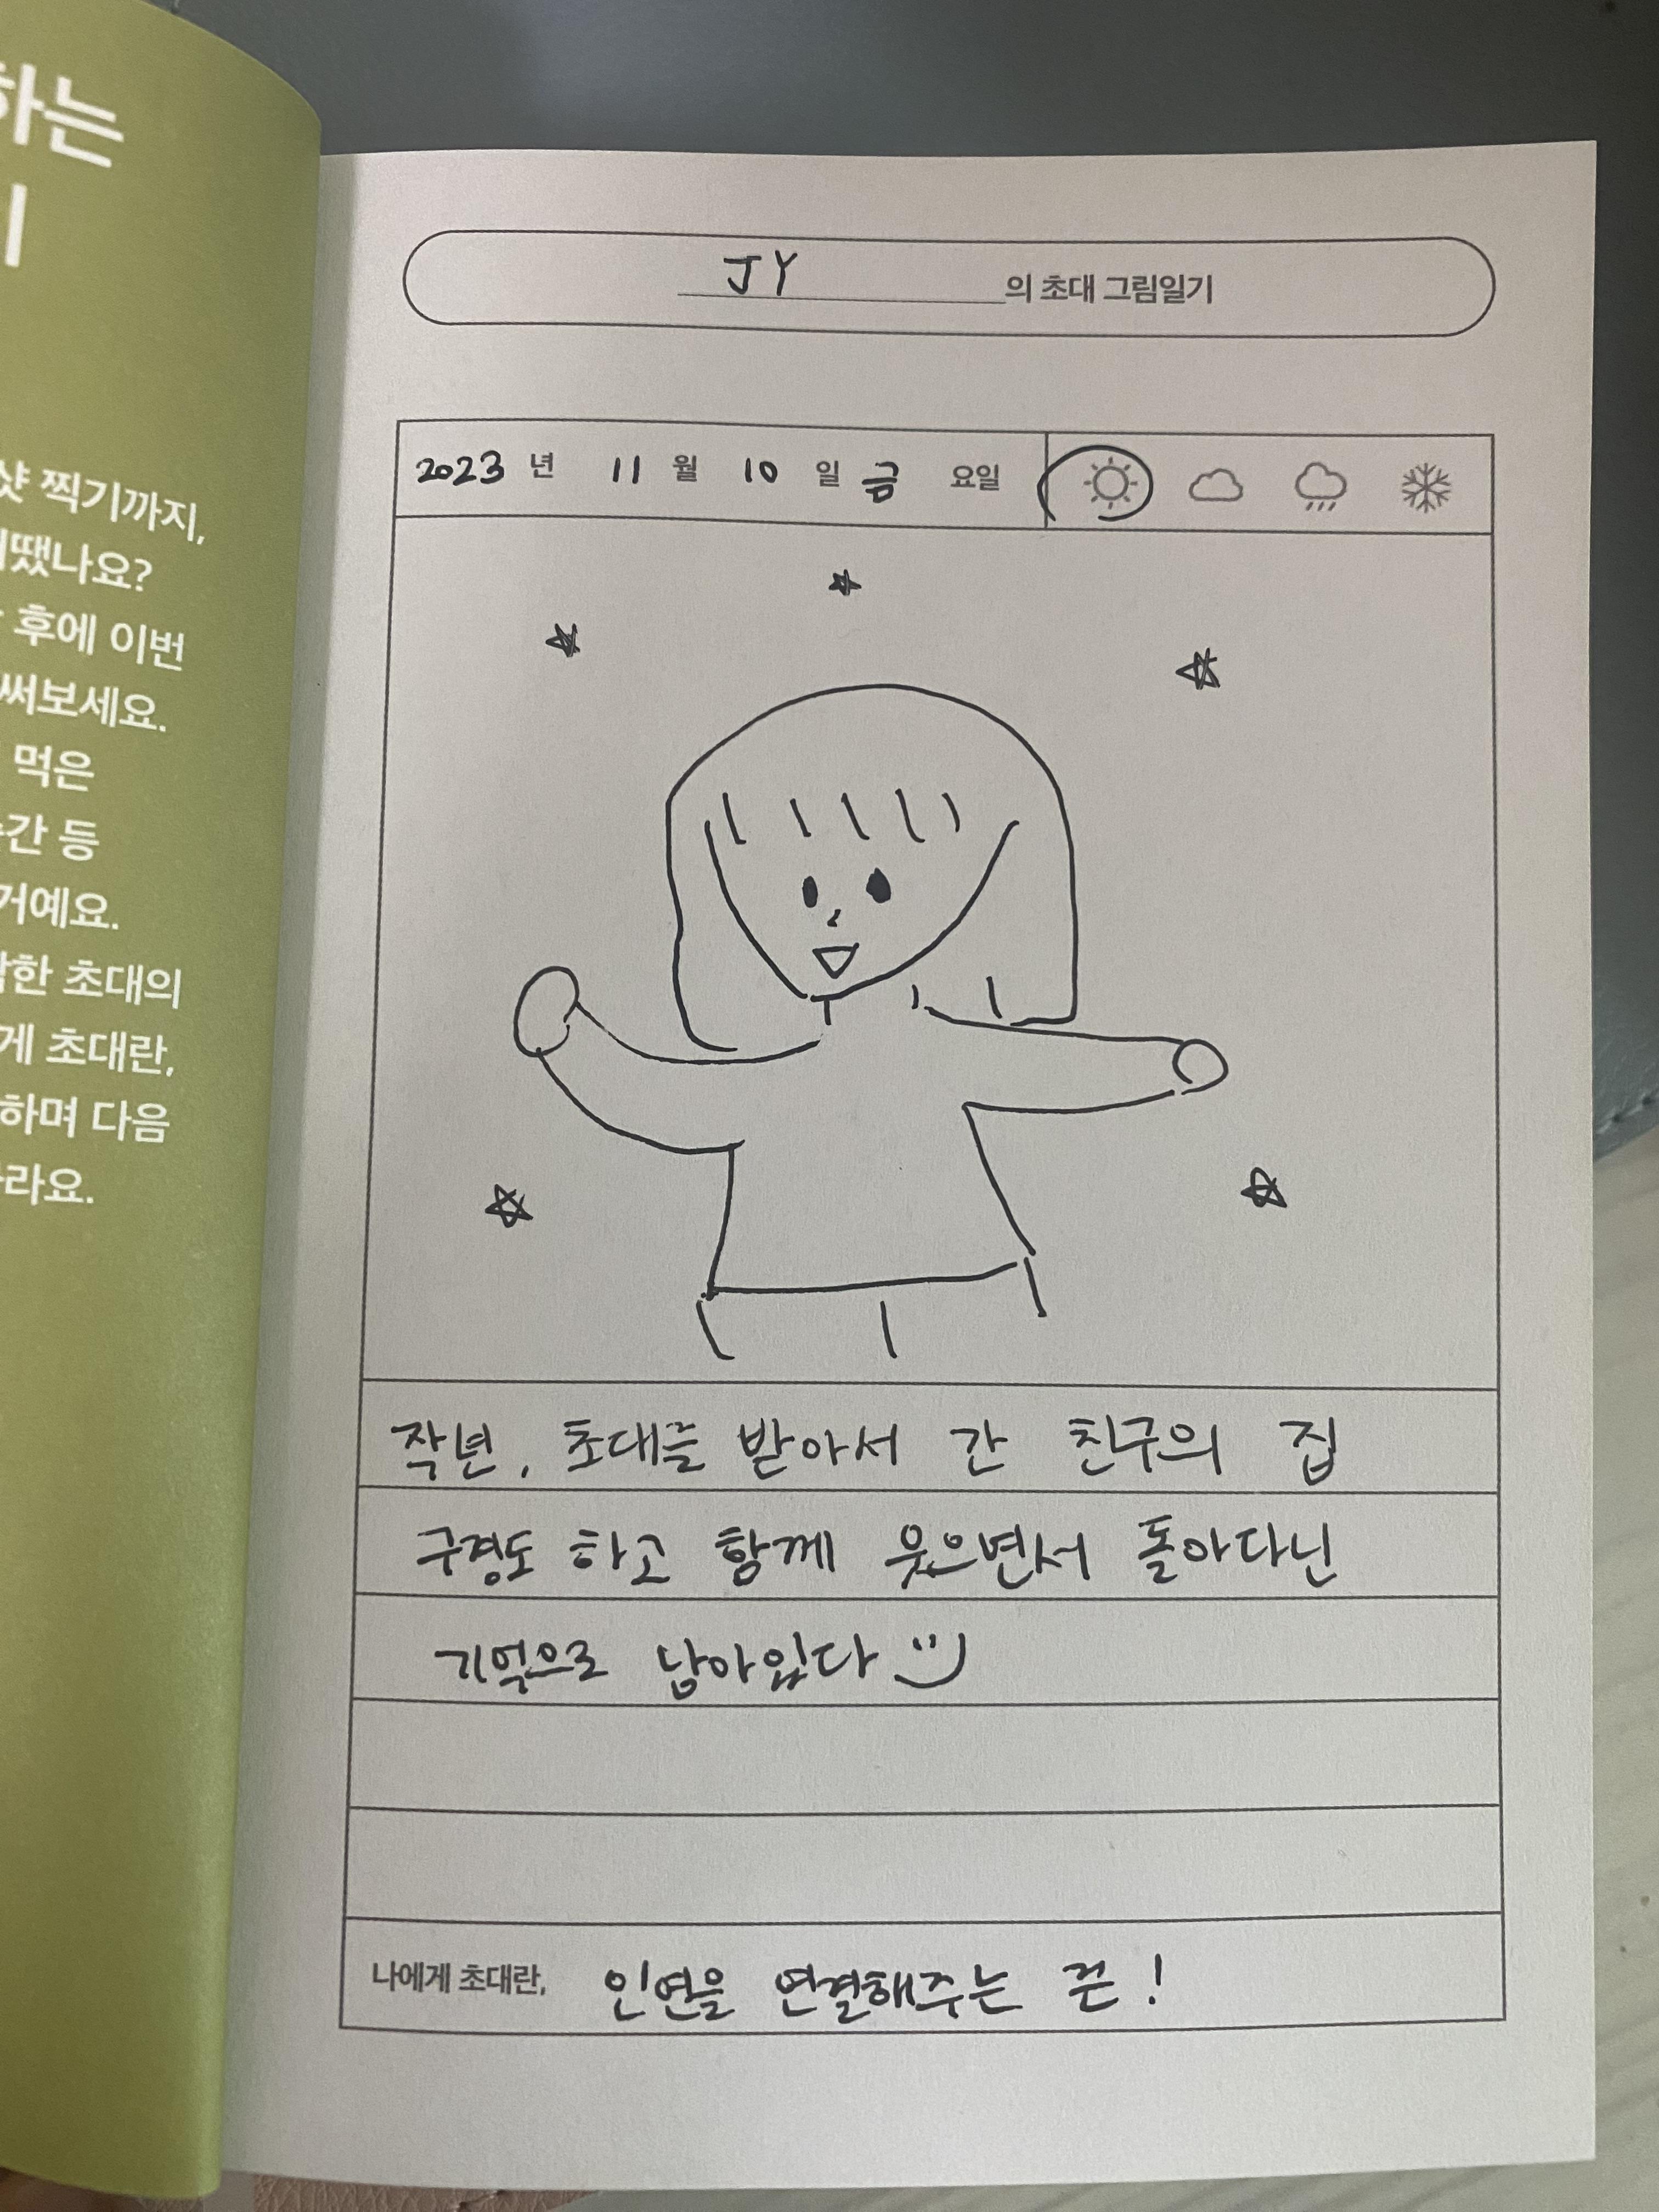 하는
샷 찍기까지,
땠나요?
후에 이번
써보세요.
먹은
간 등
거예요.
한 초대의
게 초대란,
하며 다음
라요.
JY의 초대 그림일기
2023년 11월 10일 금요일
작년, 초대를 받아서 간 친구의 집
구경도 하고 함께 웃으면서 돌아다닌
기억으로 남아있다
나에게 초대란, 인연을 연결해주는 끈!